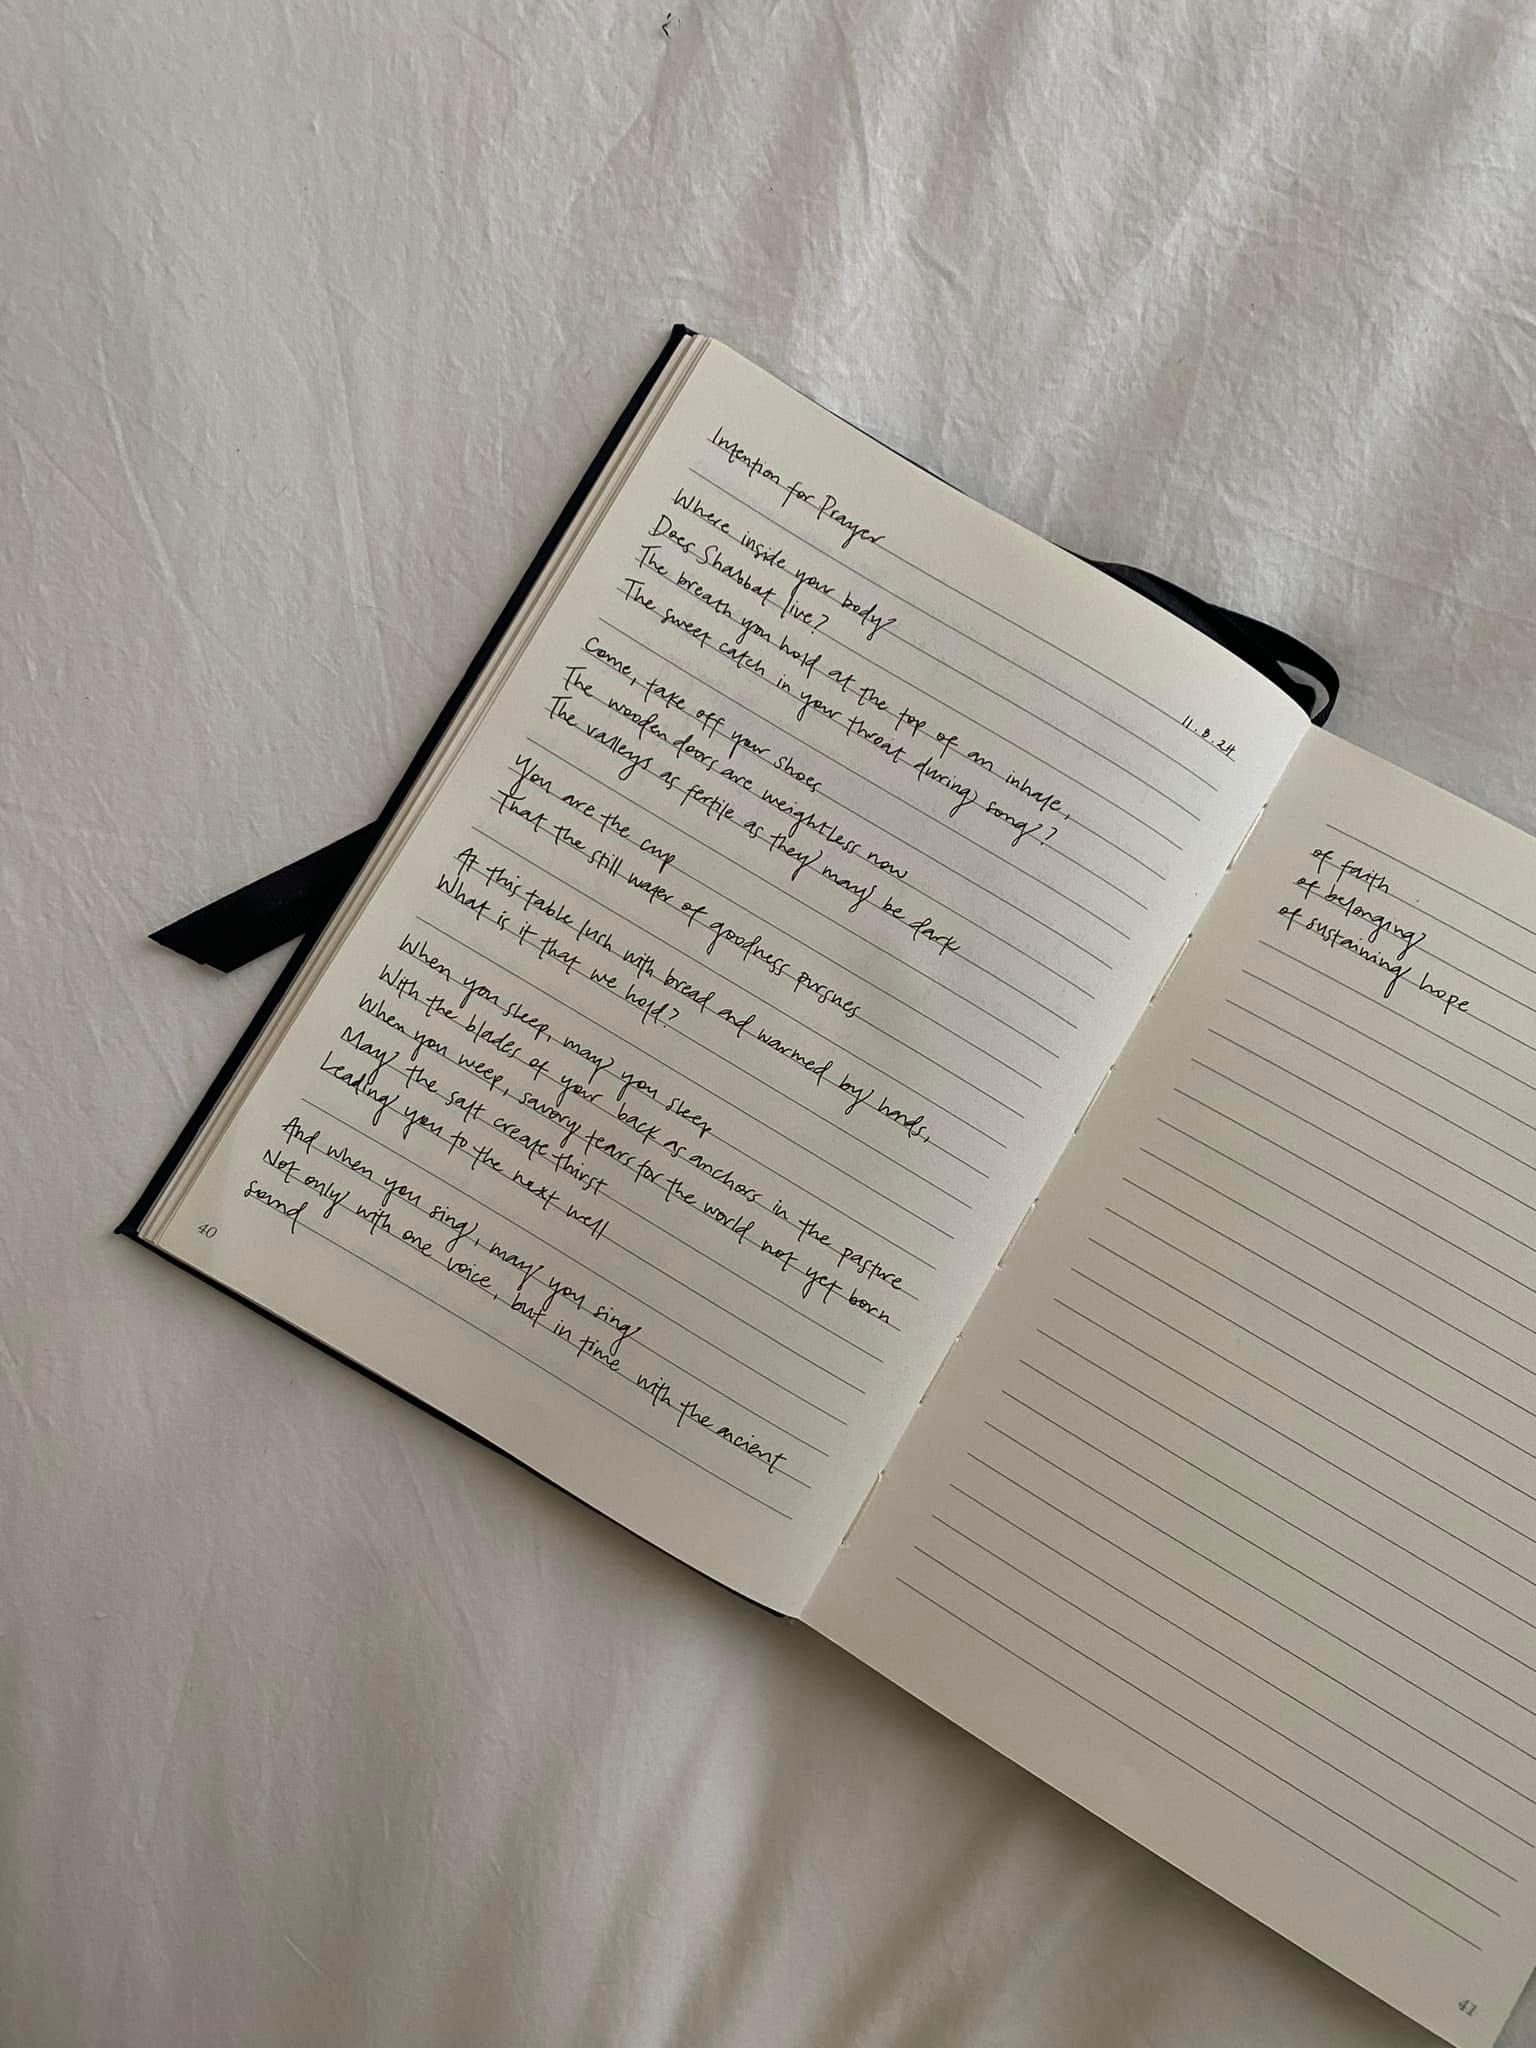 Intention for Prayer
11.8.24
Where inside your body
Does Shabbat live?
The breath you hold at the top of an inhale,
The sweet catch in your throat during song?
Come, take off your shoes
The wooden doors are weightless now
The valleys as fertile as they may be dark
You are the cup
That the still water of goodness pursues
At this table lush with bread and warmed by hands,
What is it that we hold?
When you sleep, may you sleep
With the blades of your back as anchors in the pasture
When you weep, savory tears for the world not yet born
May the salt create thirst
Leading you to the next well
And when you sing, may you sing
Not only with one voice, but in time with the ancient
sound
40
of faith
of belonging
of sustaining hope
41